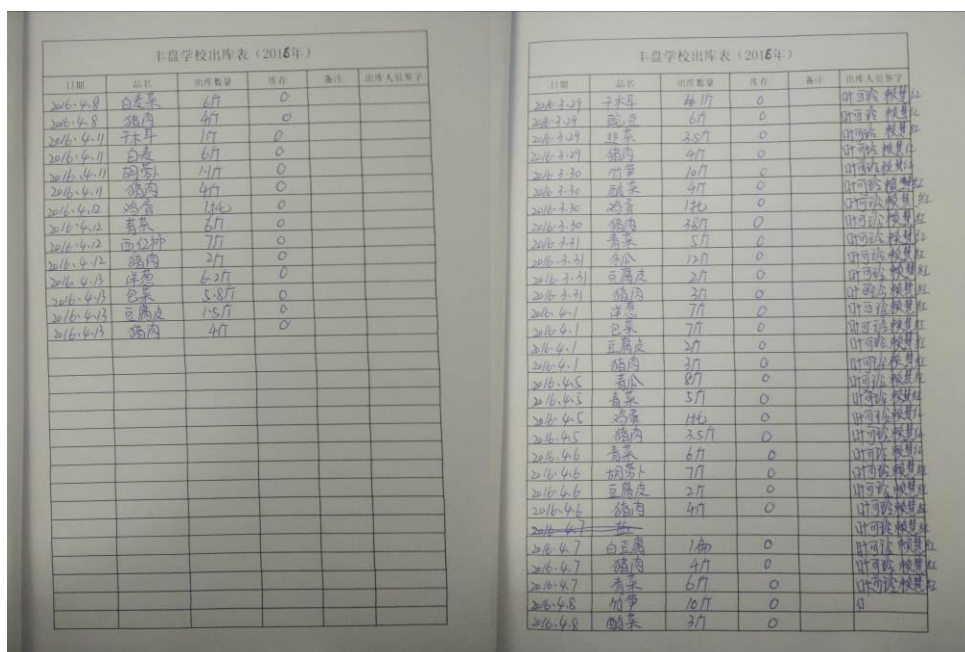 丰盘学校出库表（2016年）
日期 品名 出库数量 库存 备注 出库人员签字
2016.4.8 白麦菜 6斤 0
2016.4.8 猪肉 4斤 0
2016.4.11 干木耳 1斤 0
2016.4.11 白麦 6斤 0
2016.4.11 胡萝卜 1.1斤 0
2016.4.11 猪肉 4斤 0
2016.4.12 鸡蛋 1托 0
2016.4.12 青菜 6斤 0
2016.4.12 西红柿 7斤 0
2016.4.12 猪肉 2斤 0
2016.4.13 洋葱 6.2斤 0
2016.4.13 包菜 5.8斤 0
2016.4.13 豆腐皮 1.5斤 0
2016.4.13 猪肉 4斤 0
丰盘学校出库表（2016年）
日期 品名 出库数量 库存 备注 出库人员签字
2016.3.29 干木耳 1斤 0 叶可珍 赖慧红
2016.3.29 豌豆 6斤 0 叶可珍 赖慧红
2016.3.29 韭菜 3.5斤 0 叶可珍 赖慧红
2016.3.29 猪肉 4斤 0 叶可珍 赖慧红
2016.3.30 竹笋 10斤 0 叶可珍 赖慧红
2016.3.30 酸菜 4斤 0 叶可珍 赖慧红
2016.3.30 鸡蛋 1托 0 叶可珍 赖慧红
2016.3.30 猪肉 3.8斤 0 叶可珍 赖慧红
2016.3.31 青菜 5斤 0 叶可珍 赖慧红
2016.3.31 冬瓜 12斤 0 叶可珍 赖慧红
2016.3.31 豆腐皮 2斤 0 叶可珍 赖慧红
2016.3.31 猪肉 3斤 0 叶可珍 赖慧红
2016.4.1 洋葱 7斤 0 叶可珍 赖慧红
2016.4.1 包菜 7斤 0 叶可珍 赖慧红
2016.4.1 豆腐皮 2斤 0 叶可珍 赖慧红
2016.4.1 猪肉 3斤 0 叶可珍 赖慧红
2016.4.5 青瓜 8斤 0 叶可珍 赖慧红
2016.4.5 青菜 5斤 0 叶可珍 赖慧红
2016.4.5 鸡蛋 1托 0 叶可珍 赖慧红
2016.4.5 猪肉 3.5斤 0 叶可珍 赖慧红
2016.4.6 青菜 6斤 0 叶可珍 赖慧红
2016.4.6 胡萝卜 7斤 0 叶可珍 赖慧红
2016.4.6 豆腐皮 2斤 0 叶可珍 赖慧红
2016.4.6 猪肉 4斤 0 叶可珍 赖慧红
2016.4.7 盐 叶可珍 赖慧红
2016.4.7 白豆腐 1 0 叶可珍 赖慧红
2016.4.7 猪肉 4斤 0 叶可珍 赖慧红
2016.4.7 青菜 6斤 0 叶可珍 赖慧红
2016.4.8 竹笋 10斤 0
2016.4.8 酸菜 3斤 0